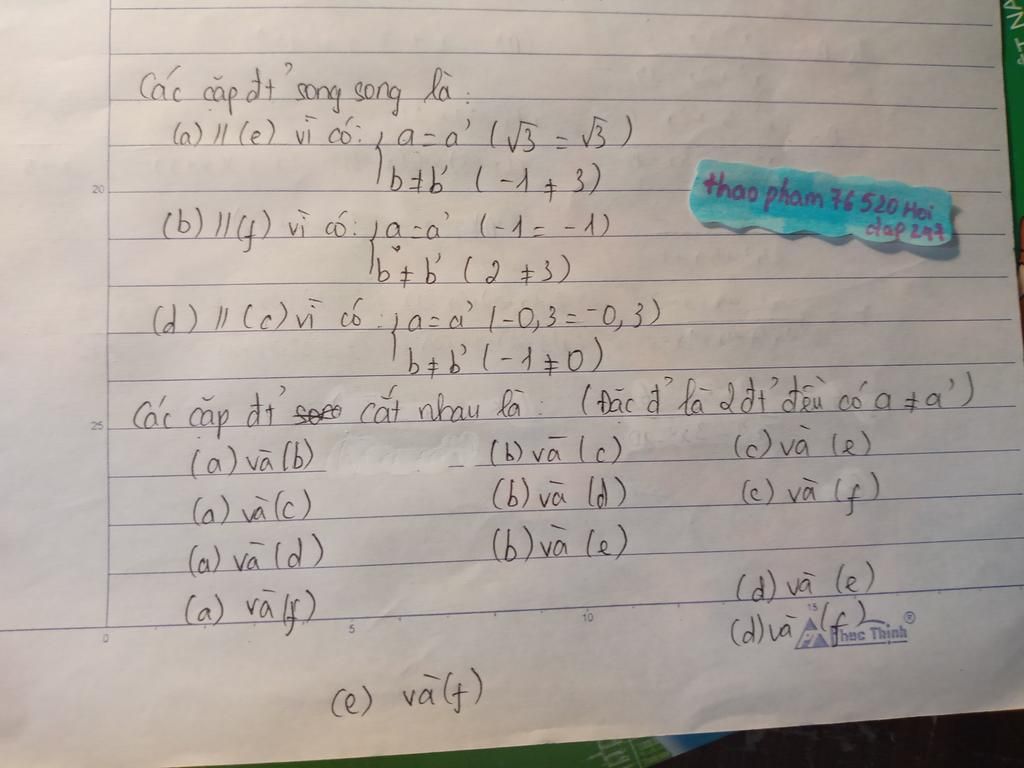 Các cặp đt' song song là:
(a) // (e) vì có: { a = a' (√3 = √3)
b ≠ b' (-1 ≠ 3)
thao pham 76520 Hoi
dap 247
(b) // (f) vì có: { a = a' (-1 = -1)
b ≠ b' (2 ≠ 3)
(d) // (c) vì có: { a = a' (-0,3 = -0,3)
b ≠ b' (-1 ≠ 0)
Các cặp đt' cắt nhau là: (Đặc đ' là 2 đt' đều có a ≠ a')
(a) và (b) (b) và (c) (c) và (e)
(a) và (c) (b) và (d) (c) và (f)
(a) và (d) (b) và (e)
(a) và (f) (d) và (e)
(d) và (f)
(e) và (f)
20
25
0 5 10 15
Thuc Thinh®